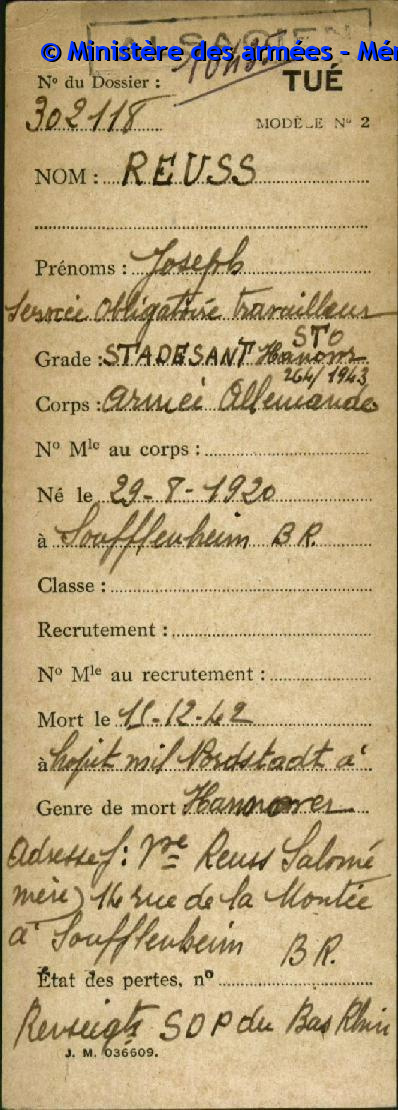 ALSACIEN
© Ministère des armées - Mém
N° du Dossier :
TUÉ
302118
MODÈLE N° 2
NOM : REUSS
Prénoms : Joseph
Service obligatoire travailleur
STO
Grade : STADESANT Hanovr
264/1943
Corps : Armée Allemande
N° Mle au corps :
Né le 29-8-1920
à Soufflenheim B R.
Classe :
Recrutement :
N° Mle au recrutement :
Mort le 11-12-42
à hopit mil Nordstadt à
Genre de mort Hannover
Adresse f : Vve Reuss Salomé
mère) 14 rue de la Montée
à Soufflenheim B R.
État des pertes, n°
Renseigts SDP du Bas Rhin
J. M. 036609.